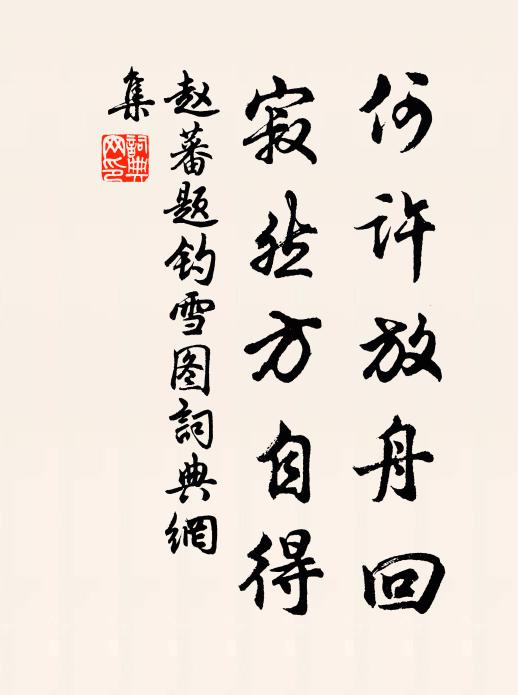 何许放舟回
寂然方自得
赵蕃题钓雪图词典網
集
詞典
网印